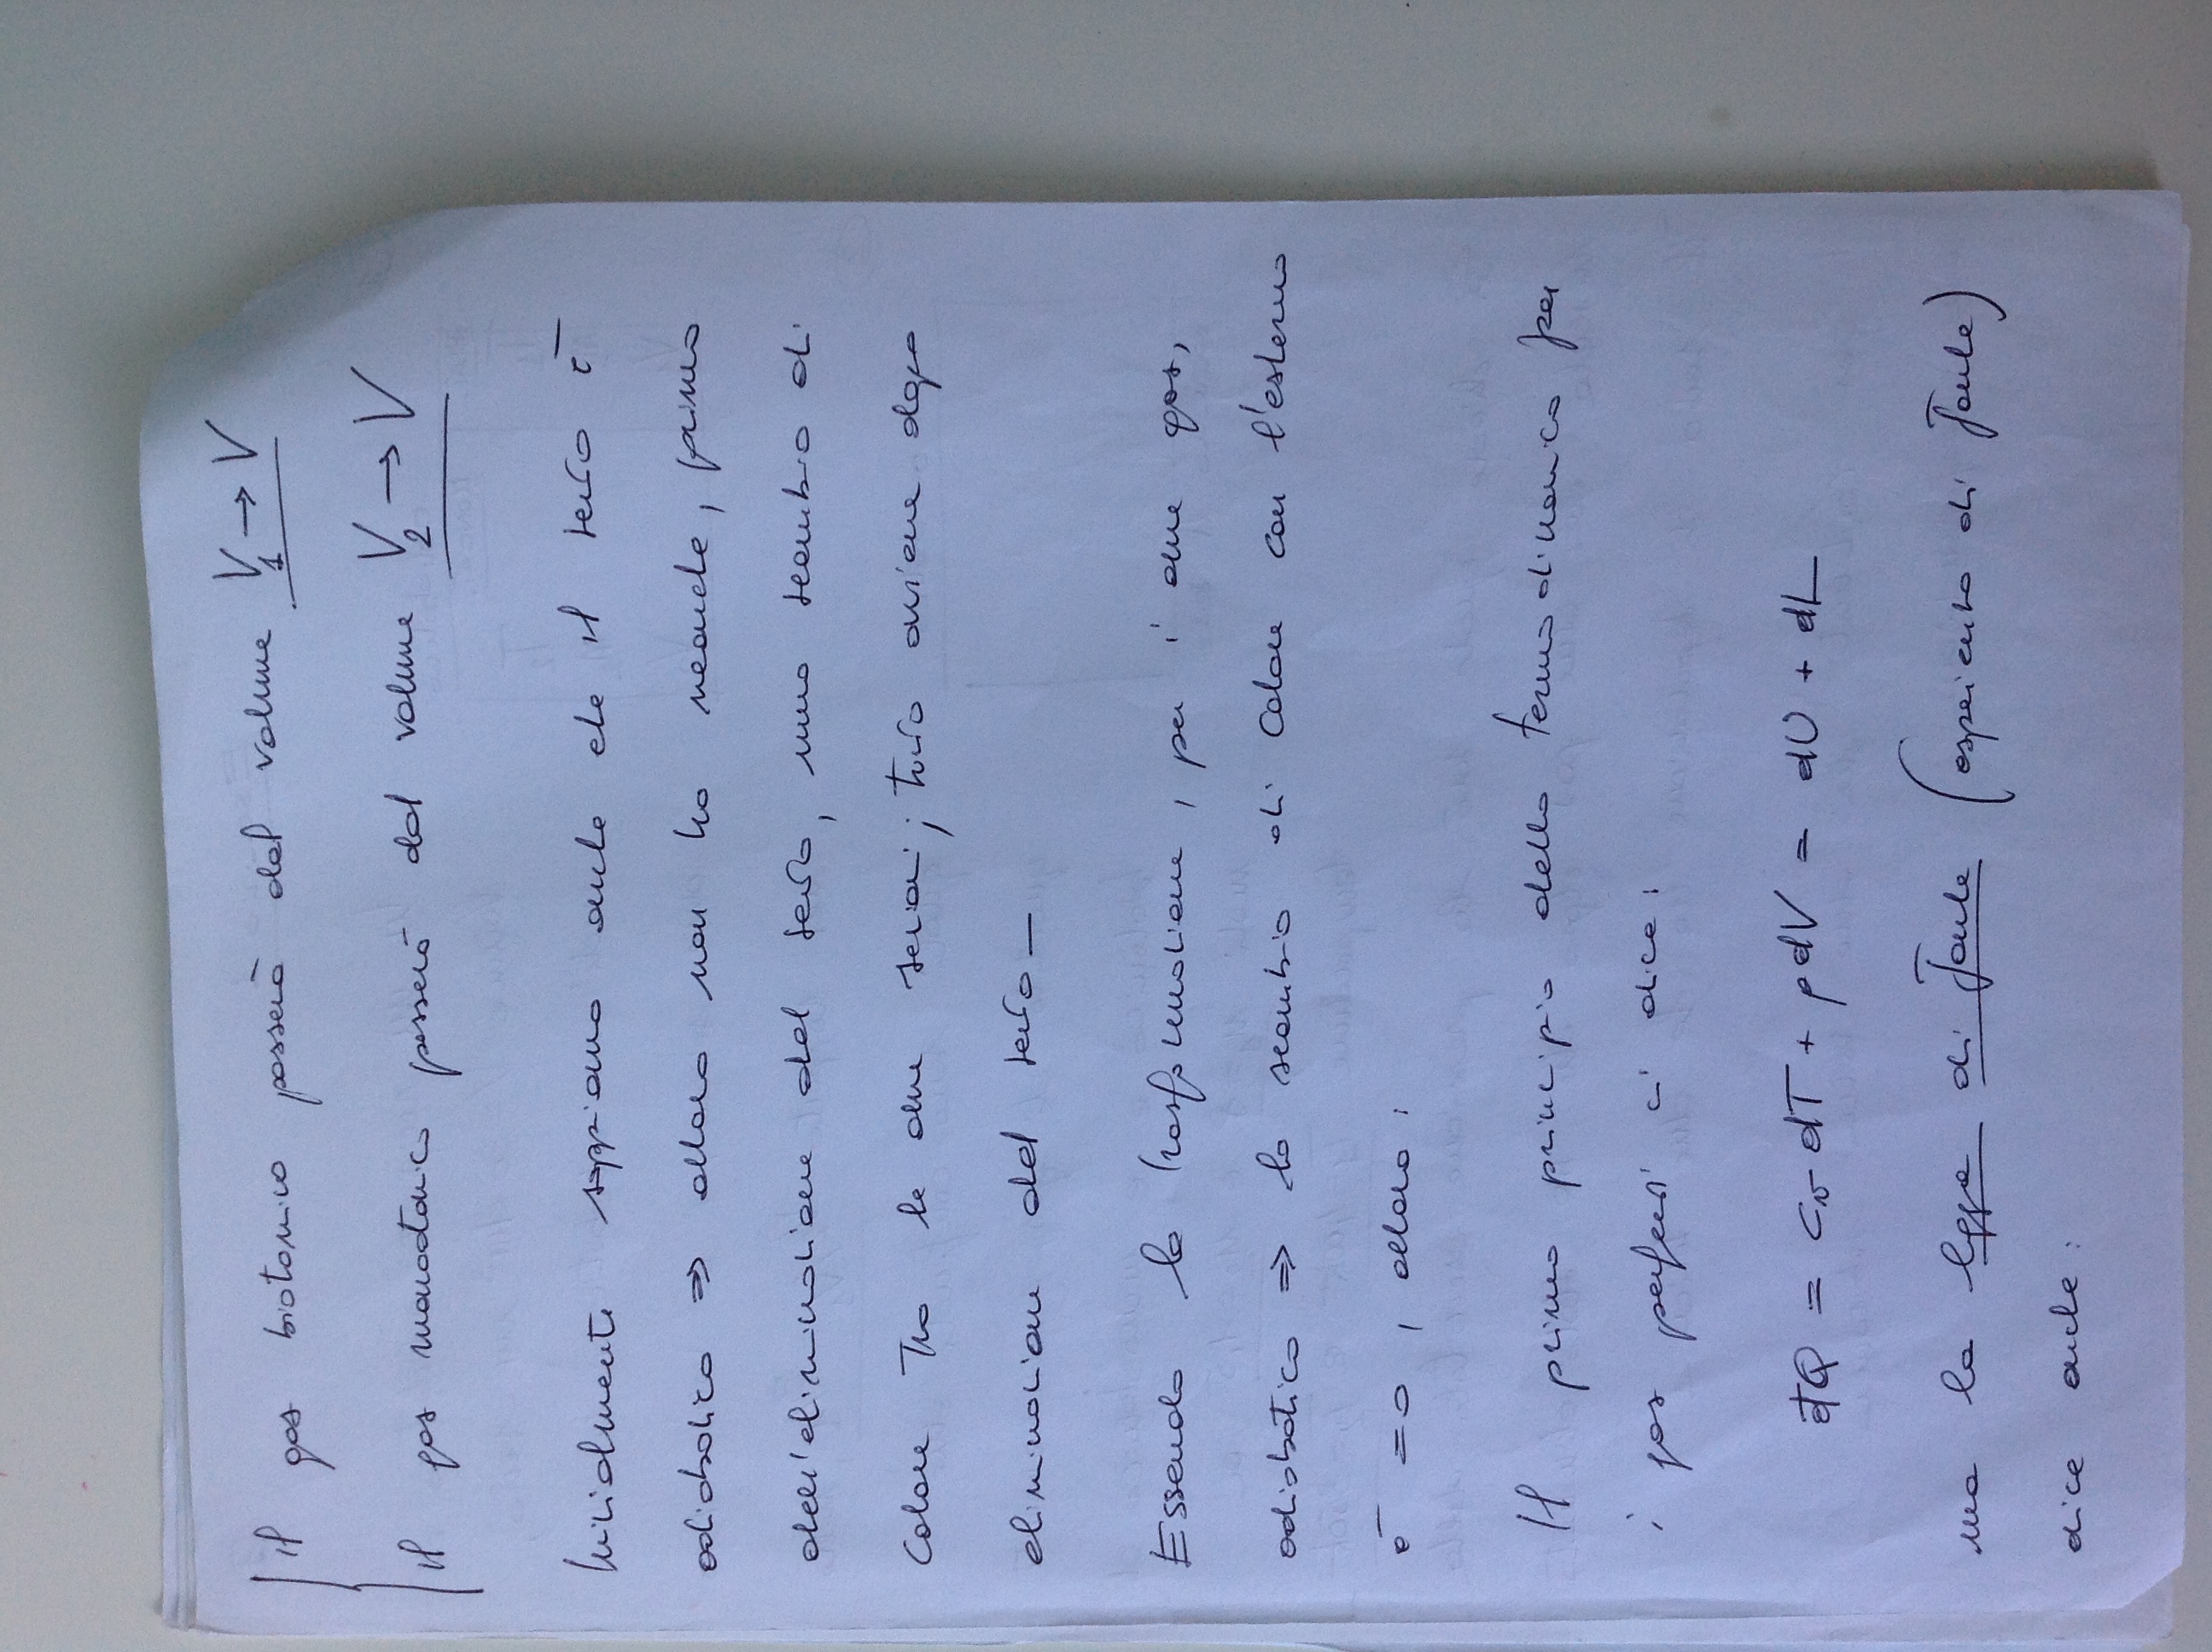 il gas biatomico passerà dal volume V₁ → V
il gas monoatomico passerà dal volume V₂ → V
Inizialmente sappiamo anche che il setto è
adiabatico ⇒ allora non ho neanche, prima
dell'eliminazione del setto, uno scambio di
calore tra le due sezioni; tutto avviene dopo
eliminazione del setto –
Essendo la trasformazione, per i due gas,
adiabatica ⇒ lo scambio di calore con l'esterno
è =0, allora:
Il primo principio della termodinamica per
i gas perfetti ci dice:
đQ = cᵥ dT + pdV = dU + dL
ma la legge di Joule (esperienza di Joule)
dice anche: